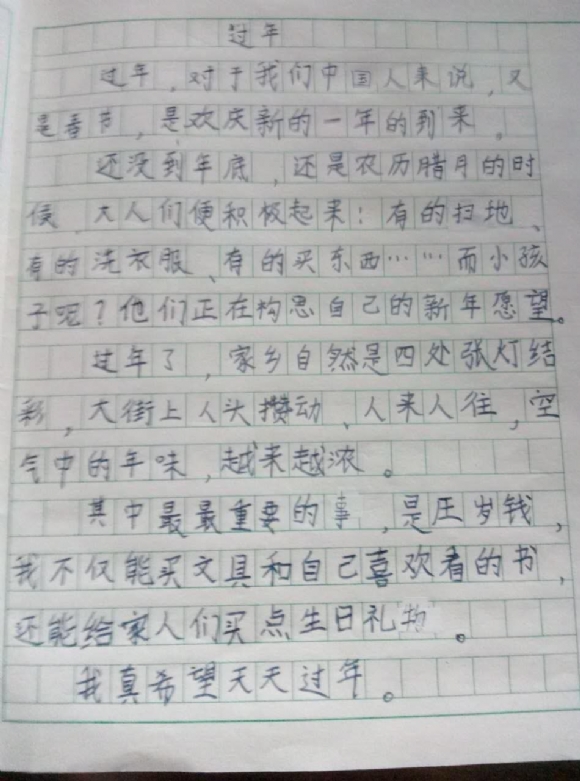 过年
过年，对于我们中国人来说，又
是春节，是欢庆新的一年的到来。
还没到年底，还是农历腊月的时
候，大人们便积极起来：有的扫地、
有的洗衣服、有的买东西……而小孩
子呢？他们正在构思自己的新年愿望。
过年了，家乡自然是四处张灯结
彩，大街上人头攒动、人来人往，空
气中的年味，越来越浓。
其中最最重要的事，是压岁钱，
我不仅能买文具和自己喜欢看的书，
还能给家人们买点生日礼物。
我真希望天天过年。